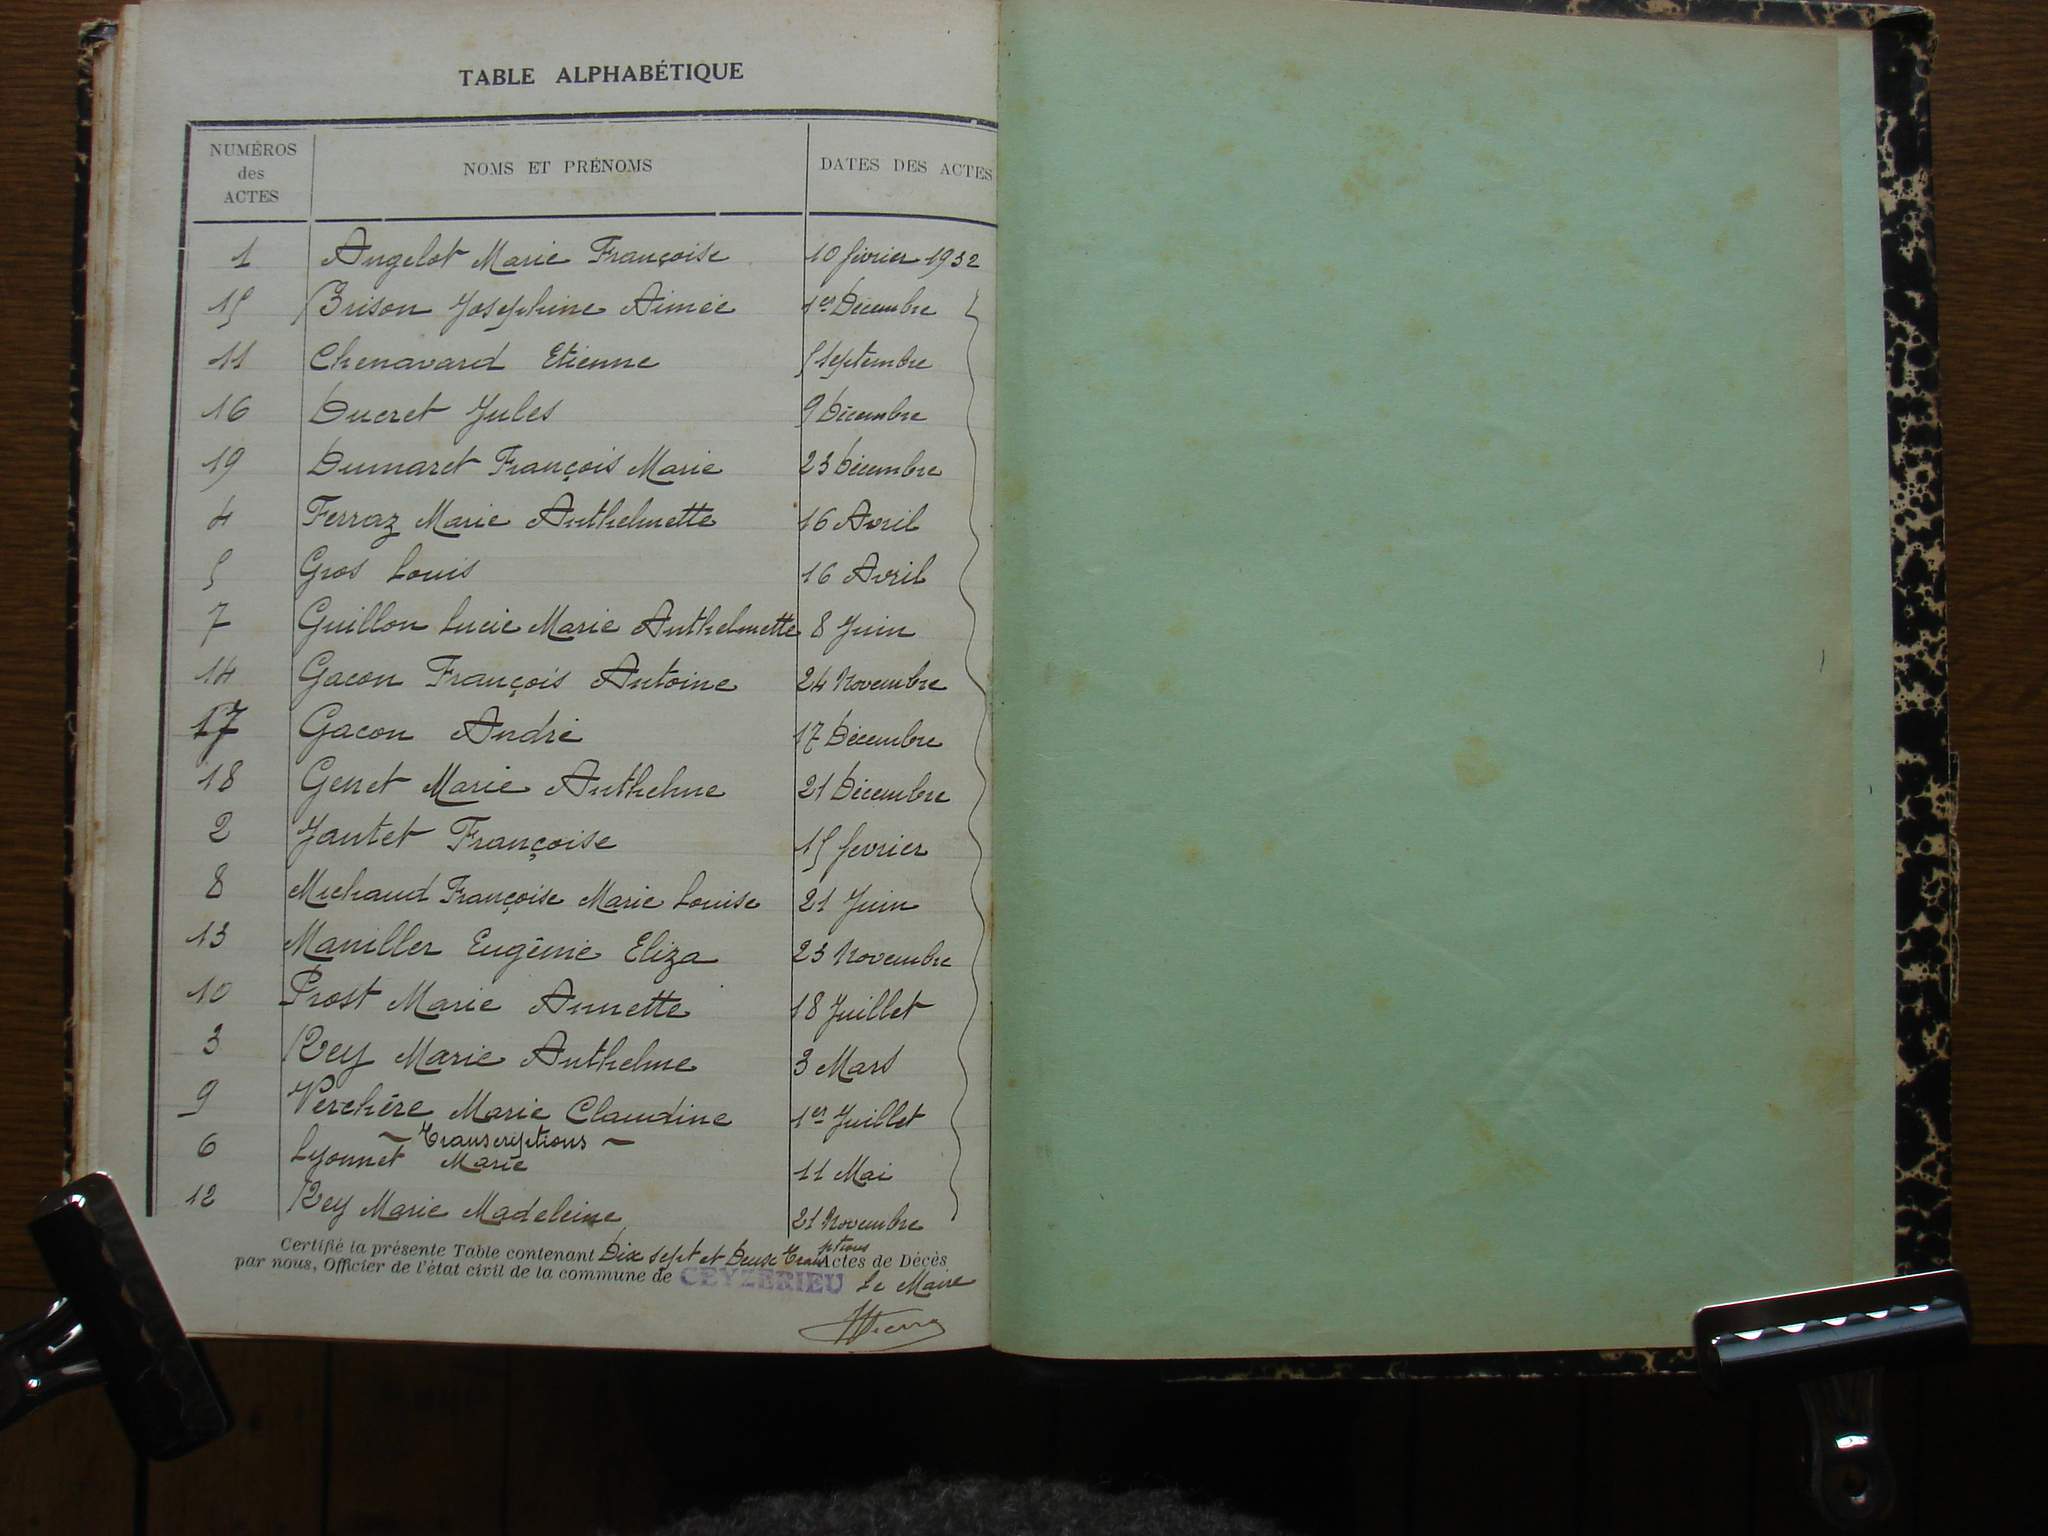 TABLE ALPHABÉTIQUE
NUMÉROS des ACTES NOMS ET PRÉNOMS DATES DES ACTES
1 Angelot Marie Françoise 10 février 1932
15 Brison Joséphine Aimée 1er Décembre
11 Chenavard Etienne 5 septembre
16 Ducret Jules 9 Décembre
19 Dumaret François Marie 23 Décembre
4 Ferraz Marie Anthelmette 16 Avril
5 Gros Louis 16 Avril
7 Guillon Lucie Marie Anthelmette 8 Juin
14 Gacon François Antoine 24 Novembre
17 Gacon André 17 Décembre
18 Genet Marie Anthelme 21 Décembre
2 Jantet Françoise 15 février
8 Michaud Françoise Marie Louise 21 Juin
13 Maniller Eugénie Eliza 23 Novembre
10 Prost Marie Annette 18 Juillet
3 Rey Marie Anthelme 3 Mars
9 Verchère Marie Claudine 1er Juillet
~ Transcriptions ~
6 Lyonnet Marie 11 Mai
12 Rey Marie Madeleine 21 Novembre
Certifié la présente Table contenant Dix sept et Deux Transcriptions Actes de Décès
par nous, Officier de l'état civil de la commune de CEYZERIEU Le Maire